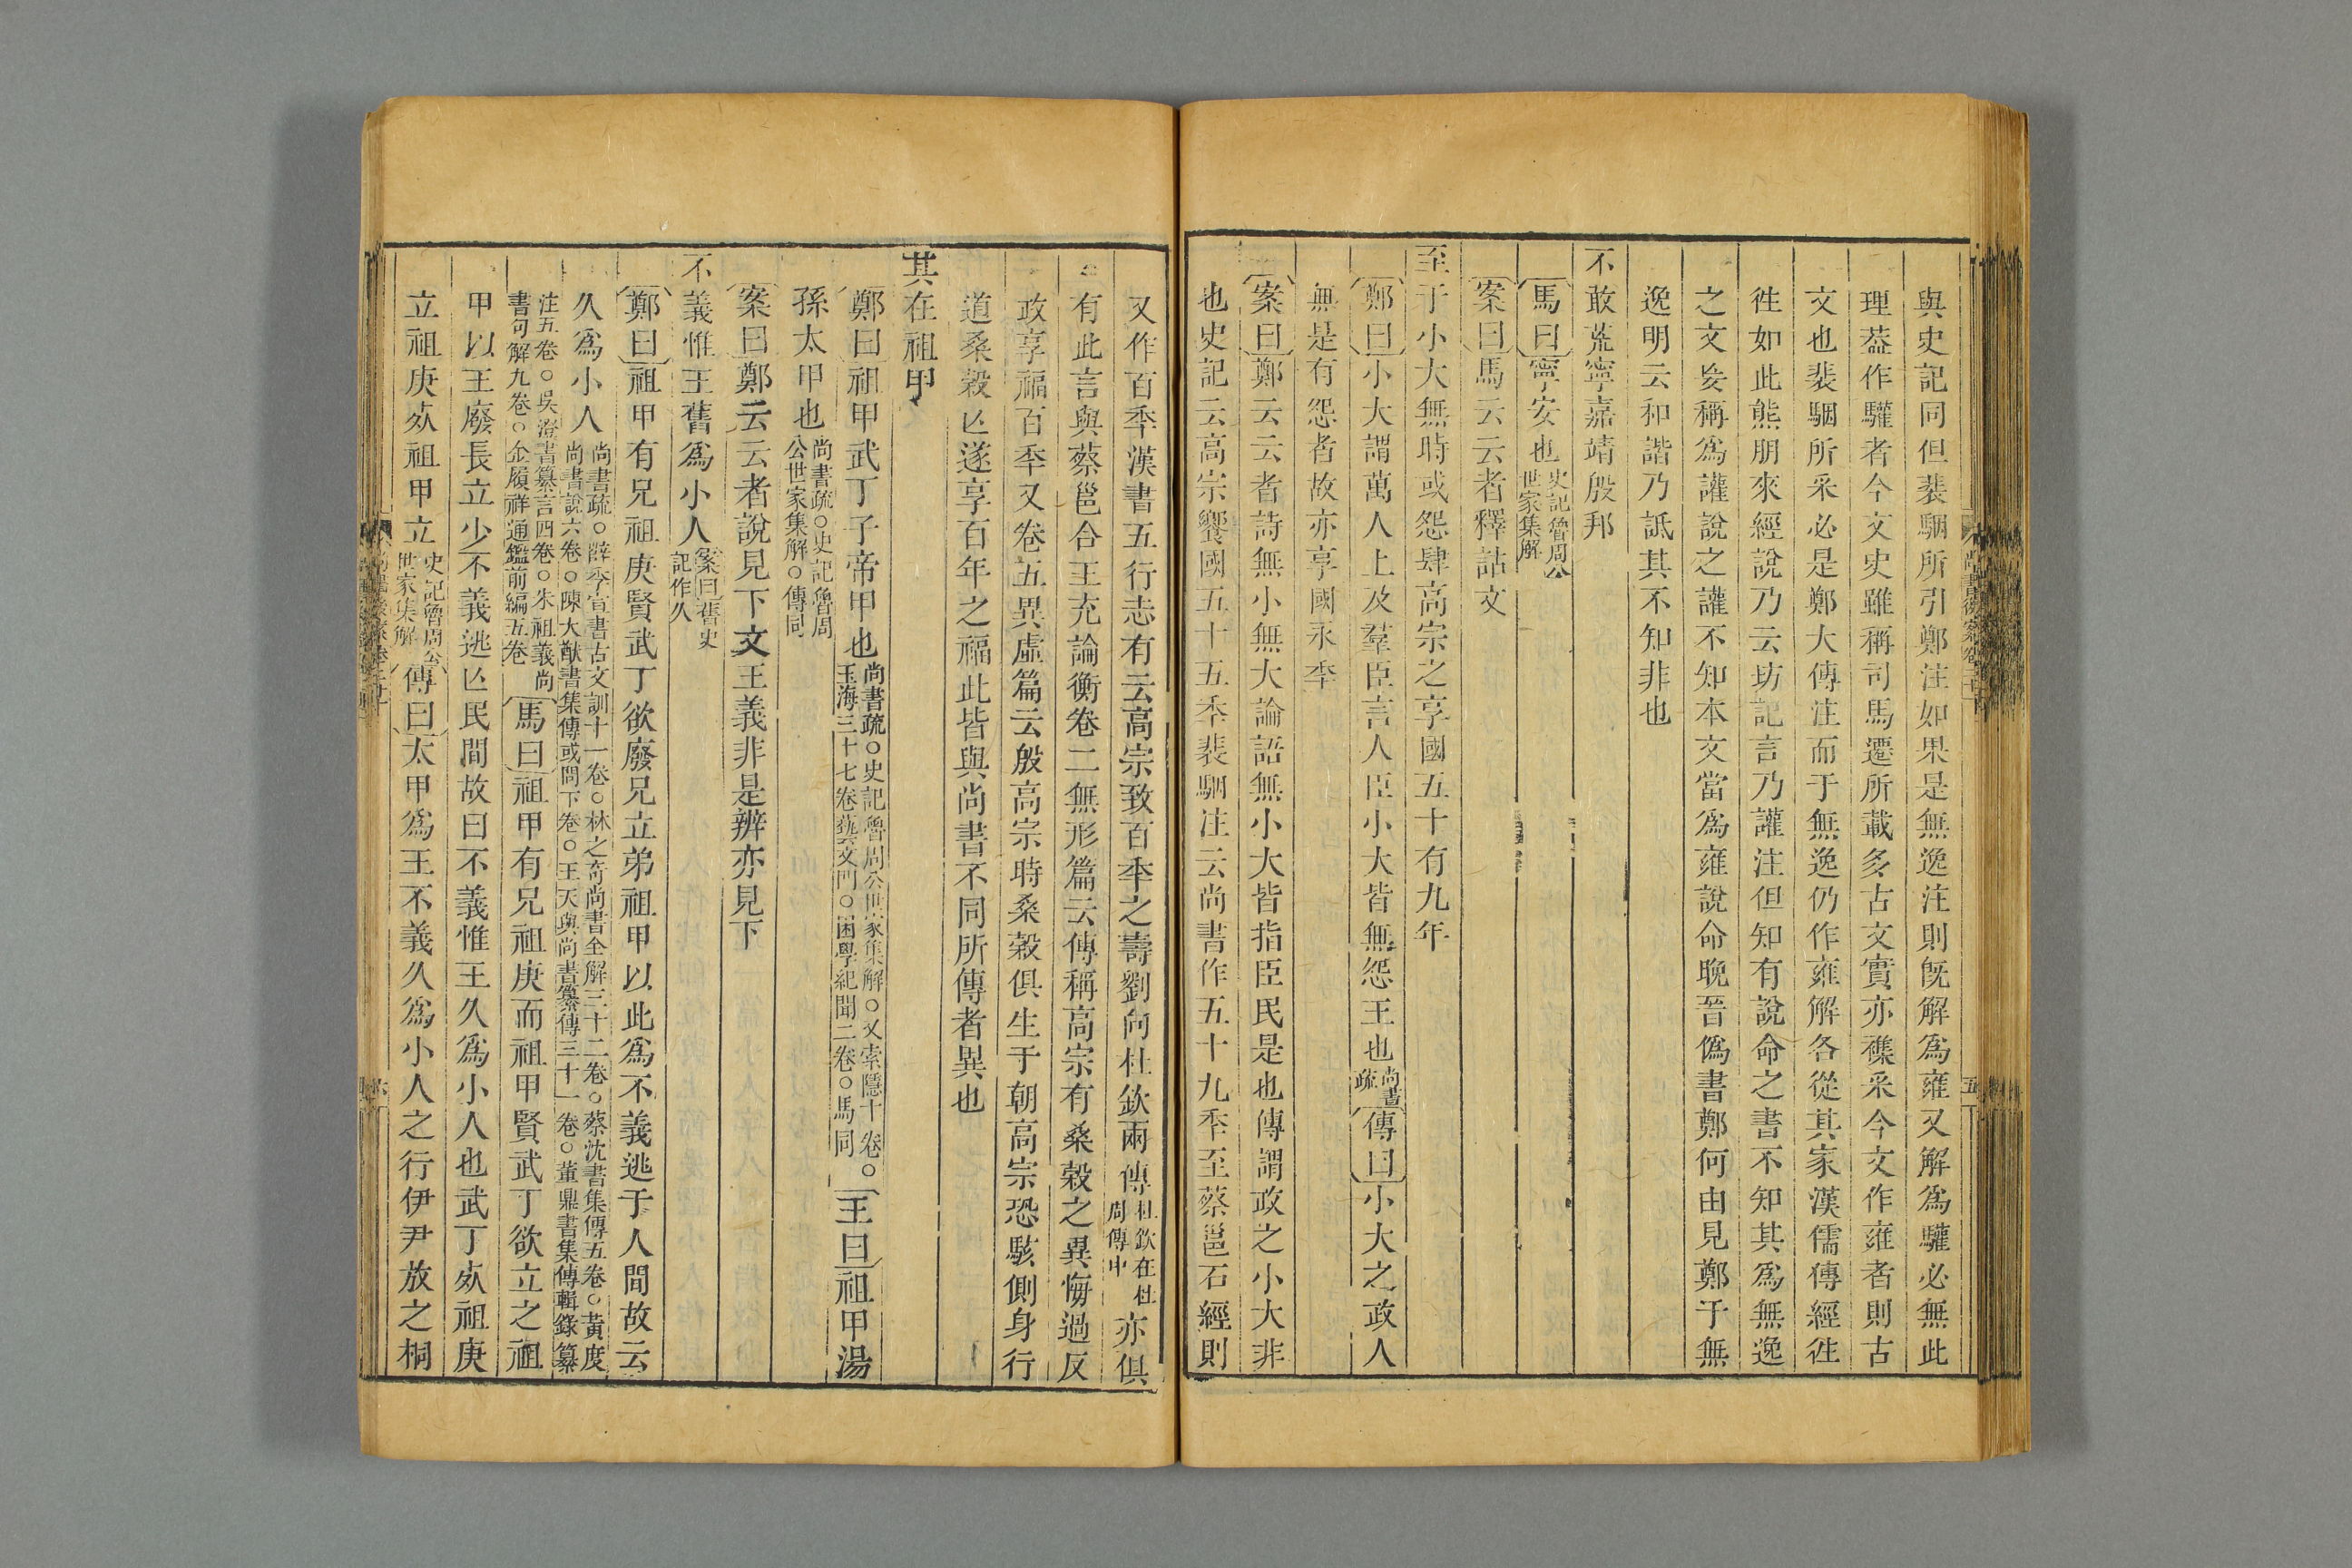 與史記同但裴駰所引鄭注如果是無逸注則既解爲雍又解爲驩必無此
理葢作驩者今文史雖稱司馬遷所載多古文實亦襍采今文作雍者則古
文也裴駰所采必是鄭大傳注而于無逸仍作雍解各從其家漢儒傳經徃
徃如此熊朋來經說乃云坊記言乃讙注但知有說命之書不知其爲無逸
之文妄稱爲讙說之讙不知本文當爲雍說命晚晉僞書鄭何由見鄭于無
逸明云和諧乃詆其不知非也
不敢荒寧嘉靖殷邦
馬曰寧安也史記魯周公世家集解
案曰馬云云者釋詁文
至于小大無時或怨肆高宗之享國五十有九年
鄭曰小大謂萬人上及羣臣言人臣小大皆無怨王也尚書疏傳曰小大之政人
無是有怨者故亦享國永秊
案曰鄭云云者詩無小無大論語無小大皆指臣民是也傳謂政之小大非
也史記云高宗饗國五十五秊裴駰注云尚書作五十九秊至蔡邕石經則
尚書後案卷二十
五
又作百秊漢書五行志有云高宗致百秊之壽劉向杜欽兩傳杜欽在杜周傳中亦俱
有此言與蔡邕合王充論衡卷二無形篇云傳稱高宗有桑穀之異悔過反
政享福百秊又卷五異虛篇云殷高宗時桑穀俱生于朝高宗恐駭側身行
道桑穀亾遂享百年之福此皆與尚書不同所傳者異也
其在祖甲
鄭曰祖甲武丁子帝甲也尚書疏○史記魯周公世家集解○又索隱十卷○玉海三十七卷藝文門○困學紀聞二卷○馬同王曰祖甲湯
孫太甲也尚書疏○史記魯周公世家集解○傳同
案曰鄭云云者說見下文王義非是辨亦見下
不義惟王舊爲小人案曰舊史記作久
鄭曰祖甲有兄祖庚賢武丁欲廢兄立弟祖甲以此爲不義逃于人間故云
久爲小人尚書疏○薛季宣書古文訓十一卷○林之奇尚書全解三十二卷○蔡沈書集傳五卷○黃度尚書說六卷○陳大猷書集傳或問下卷○王天與尚書纂傳三十一卷○董鼎書集傳輯錄纂
注五卷○吳澄書纂言四卷○朱祖義尚書句解九卷○金履祥通鑑前編五卷馬曰祖甲有兄祖庚而祖甲賢武丁欲立之祖
甲以王廢長立少不義逃亾民間故曰不義惟王久爲小人也武丁㱙祖庚
立祖庚㱙祖甲立史記魯周公世家集解傳曰太甲爲王不義久爲小人之行伊尹放之桐